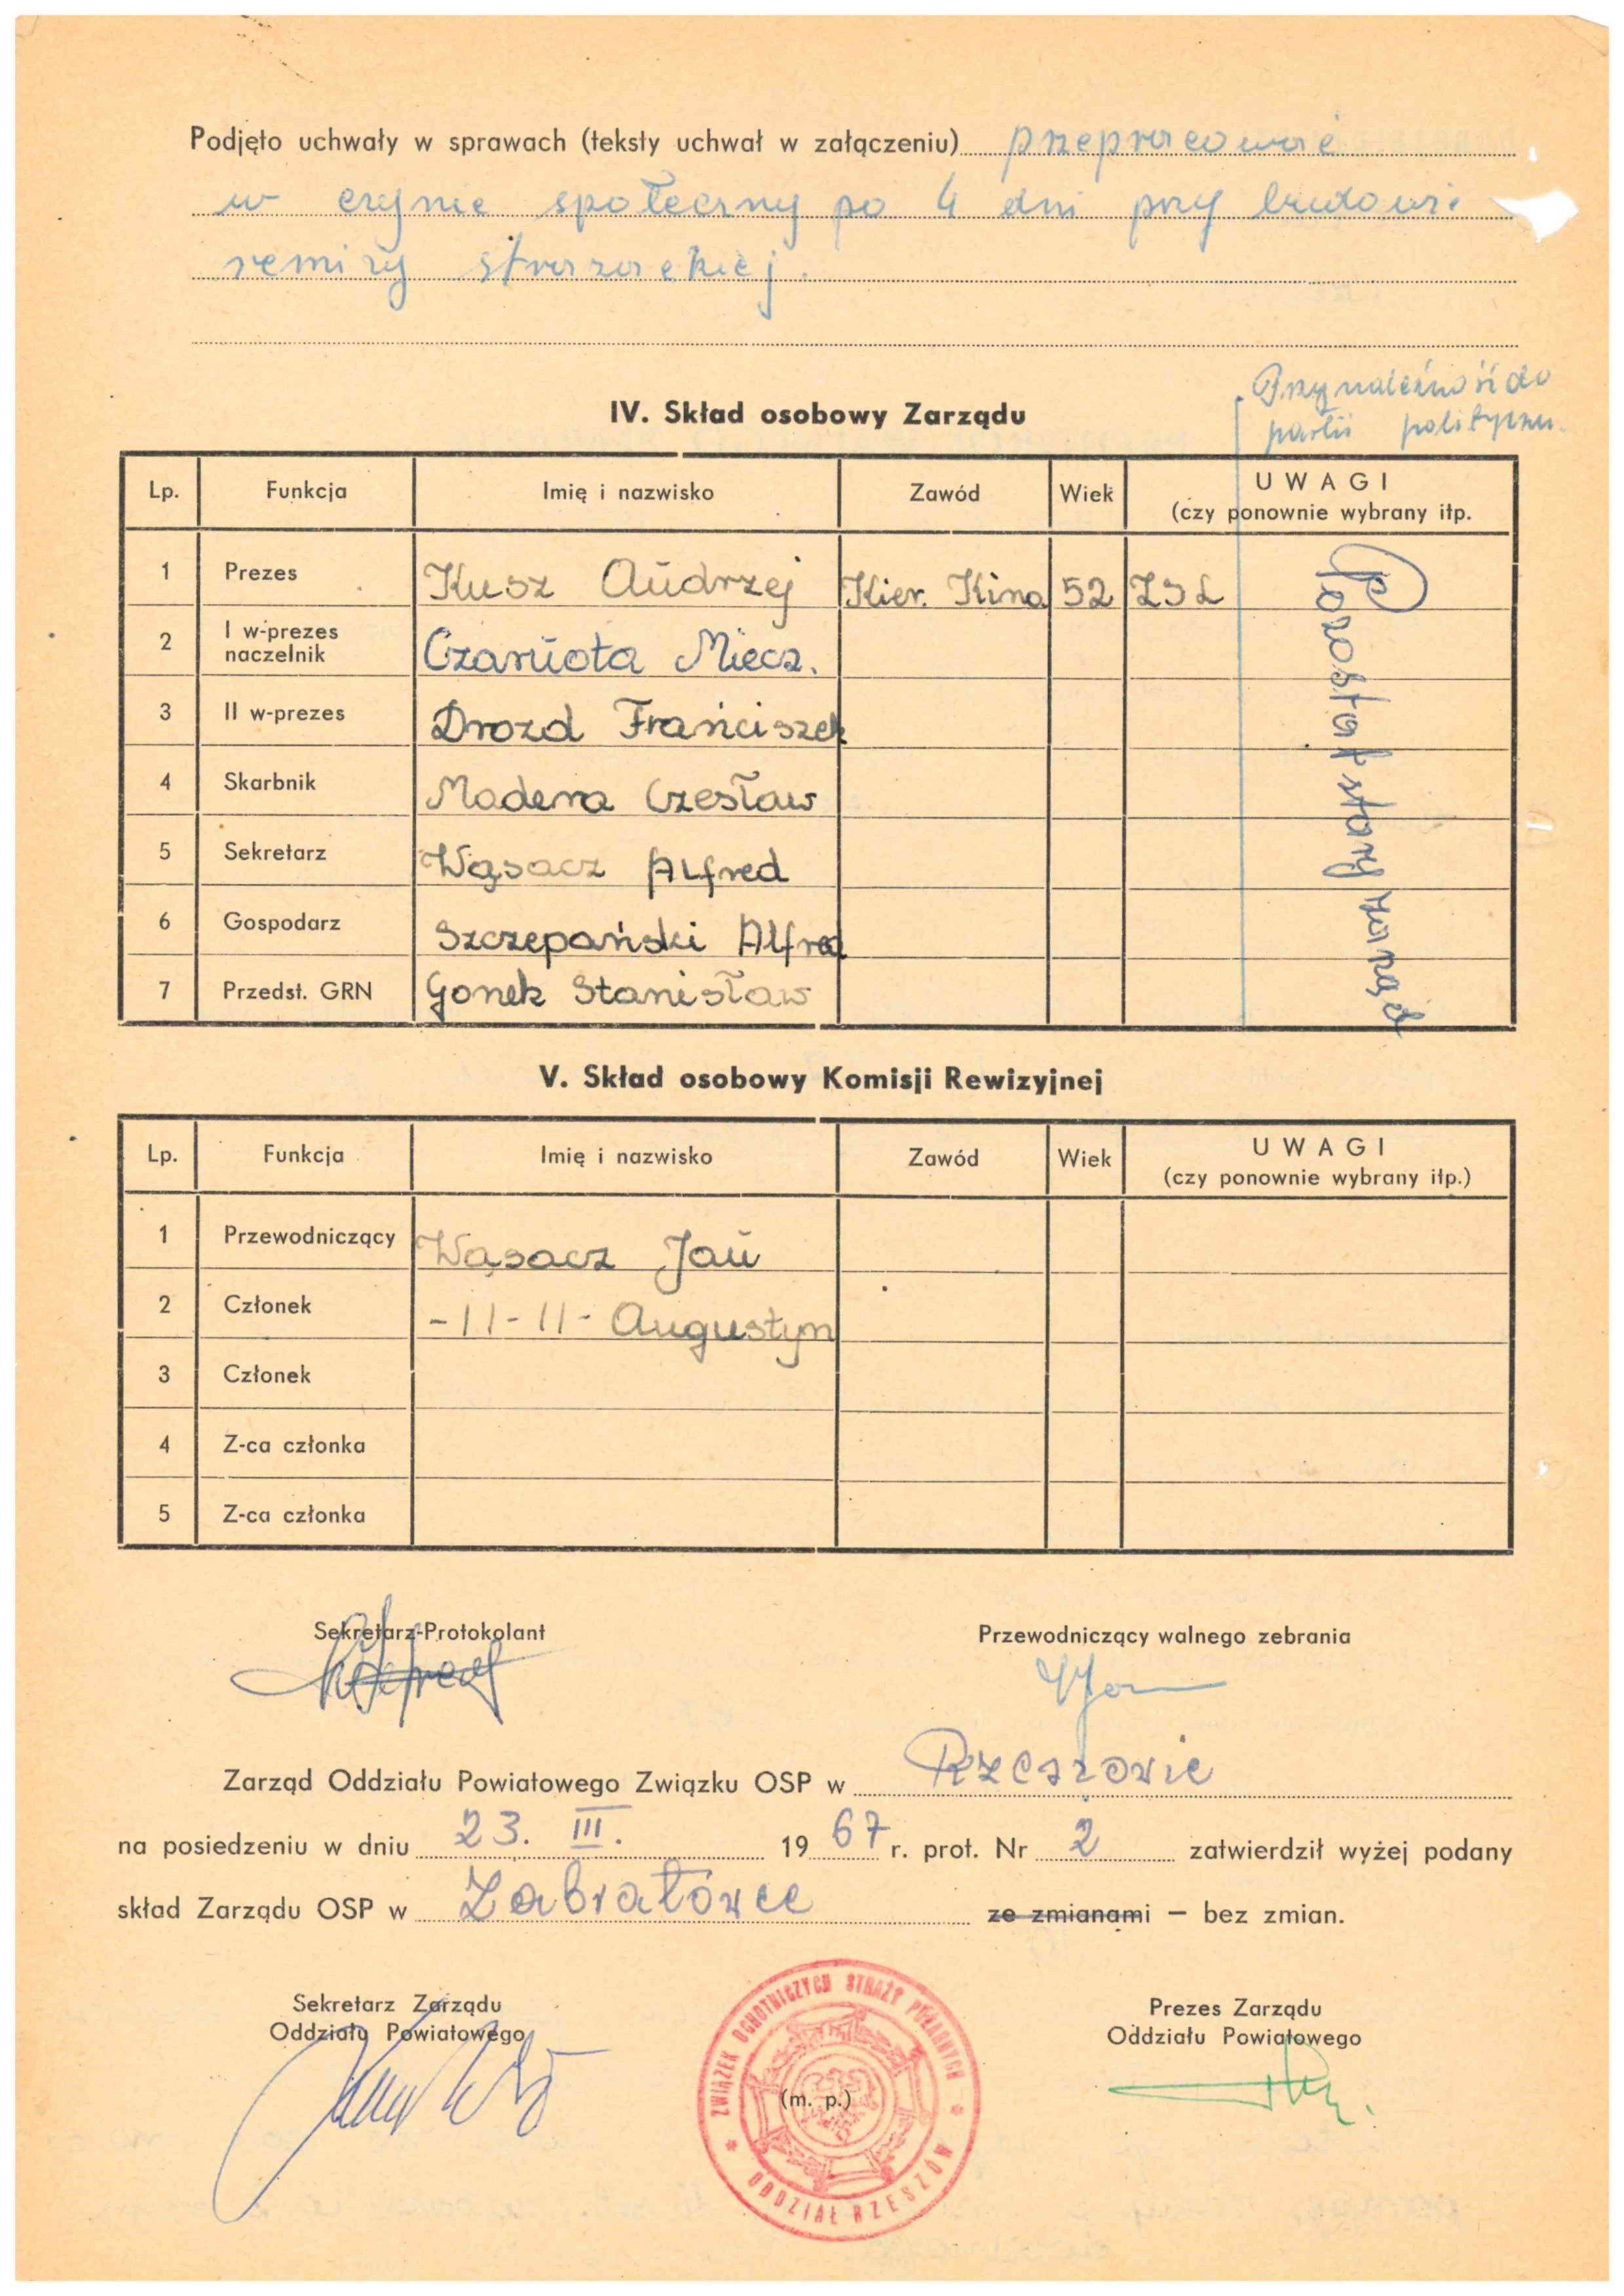 Podjęto uchwały w sprawach (teksty uchwał w załączeniu) przepracować
w czynie społeczny po 4 dni przy budowie
remizy strarzackiej.
Przynależność do
partii polityczn.
IV. Skład osobowy Zarządu
Lp. Funkcja Imię i nazwisko Zawód Wiek UWAGI
(czy ponownie wybrany itp.
1 Prezes Kusz Andrzej Kier. Kina 52 ZSL
2 I w-prezes naczelnik Czarnota Miecz.
3 II w-prezes Drozd Franciszek
4 Skarbnik Madera Czesław
5 Sekretarz Wąsacz Alfred
6 Gospodarz Szczepański Alfred
7 Przedst. GRN Gonek Stanisław
Pozostał stary zarząd
V. Skład osobowy Komisji Rewizyjnej
Lp. Funkcja Imię i nazwisko Zawód Wiek UWAGI
(czy ponownie wybrany itp.)
1 Przewodniczący Wąsacz Jan
2 Członek -11-11- Augustyn
3 Członek
4 Z-ca członka
5 Z-ca członka
Sekretarz-Protokolant Przewodniczący walnego zebrania
Zarząd Oddziału Powiatowego Związku OSP w Rzeszowie
na posiedzeniu w dniu 23. III. 1967 r. prot. Nr 2 zatwierdził wyżej podany
skład Zarządu OSP w Zabratówce ze zmianami – bez zmian.
Sekretarz Zarządu
Oddziału Powiatowego
Prezes Zarządu
Oddziału Powiatowego
(m. p.)
ZWIĄZEK OCHOTNICZYCH STRAŻY POŻARNYCH
ODDZIAŁ RZESZÓW